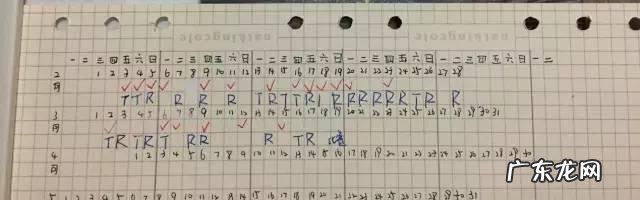 一 二 三 四 五 六 日 一 二 三 四 五 六 日 一 二 三 四 五 六 日 一 二 三 四 五 六 日 一 二 三 四 五 六 日 一 二
2月 1 2 3 4 5 6 7 8 9 10 11 12 13 14 15 16 17 18 19 20 21 22 23 24 25 26 27 28
T T R R R R T R T T R I R R R R R R T R R
3月 1 2 3 4 5 6 7 8 9 10 11 12 13 14 15 16 17 18 19 20 21 22 23 24 25 26 27 28 29 30 31
T R T R T R R R T R
4月 1 2 3 4 5 6 7 8 9 10 11 12 13 14 15 16 17 18 19 20 21 22 23 24 25 26 27 28 29 30
5 1 2 3 4 5 6 7 8 9 10 11 12 13 14 15 16 17 18 19 20 21 22 23 24 25 26 27 28 29 30 31
广东龙网